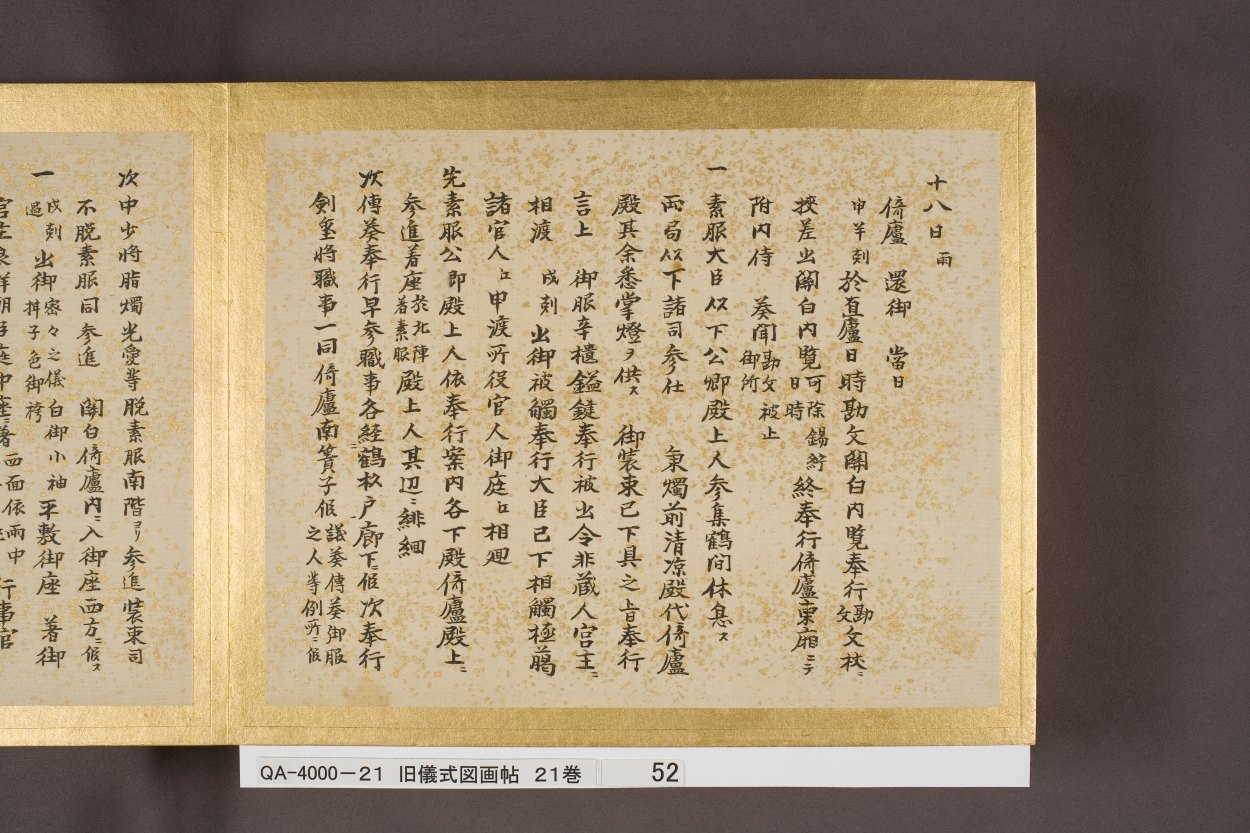 十八日 雨
倚廬 還御 當日
申半刻 於直廬日時勘文關白内覧奉行勘文文杖ニ
挾差出關白内覧可除錫紵日時終奉行倚廬東廂ニテ
附内侍 奏聞勘文御所被止
一 素服大臣以下公卿殿上人参集鶴間休息ス
両局以下諸司参仕 秉燭前清凉殿代倚廬
殿其余悉掌燈ヲ供ス 御装束已下具之旨奉行
言上 御服辛櫃鎰鍵奉行被出令非蔵人宮主ニ
相渡 戌刻 出御被觸奉行大臣已下相觸極﨟
諸官人江申渡所役官人御庭江相廻
先素服公卿殿上人依奉行案内各下殿倚廬殿上ニ
参進着座於北陣著素服殿上人其辺ニ緋細
次傳奏奉行早参職事各経鶴杦戸廊下ニ候次奉行
剣璽将職事一同倚廬南簀子候議奏傳奏御服之人等例所ニ候
次中少将脂燭光愛等脱素服南階ヨリ参進装束司
不脱素服同参進 關白倚廬内ニ入御座西方ニ候ス
一 戌刻過 出御密々之儀白御小袖拝子色御袴平敷御座 著御
QA-4000-21 旧儀式図画帖 21巻 52